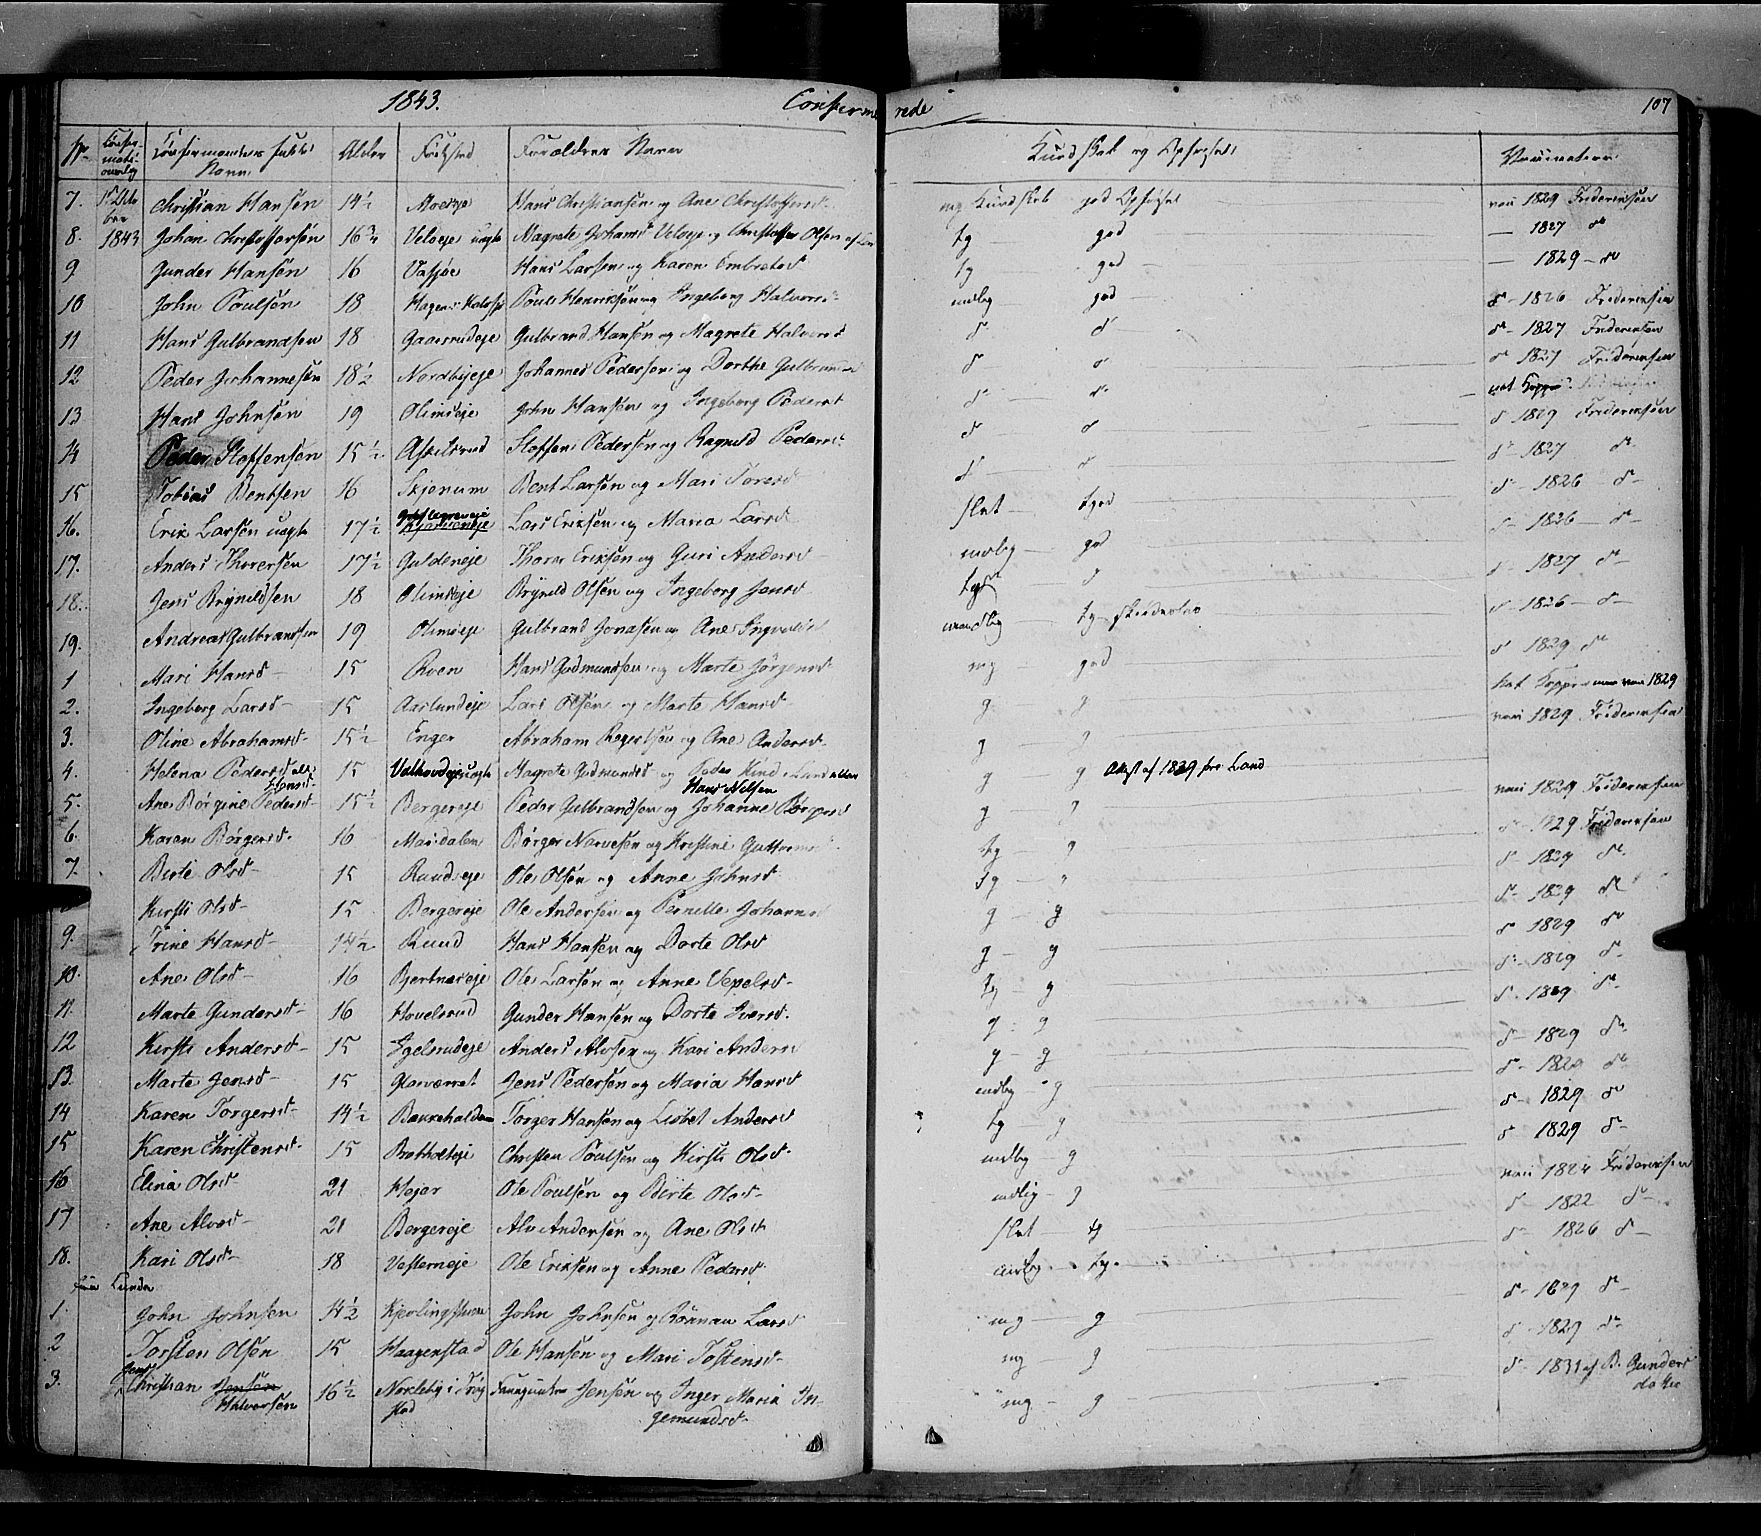 1843. Confirmerede 107
No Confirmationsdag Confirmandens fulde Navn. Alder Fødested Forældres Navn Kundskab og Opførsel Vaccination
7. 1 Octobr Christian Hansen 14½ Moeseje Hans Christiansen og Ane Christoffersd. mg Kundskab god Opførsel vac 1829 Frideriksen
8. 1843 Johan Christoffersen 16¾ Veloeje uægte Magrete Johansd Veloeje og Christoffer Olsen tg god — 1827 do
9 Gunder Hansen 16 Hans Larsen og Karen Embretsd tg god — 1829 – do
10 John Poulsen 18 Poul Henriksen og Ingeborg Halvorsd mdlg god do – 1826 Frideriksen
11 Hans Gulbrandsen 18 Gaasrudeje Gulbrand Hansen og Magrete Halvorsd do do do – 1827 Frideriksen
12 Peder Johannesen 18½ Nordbyeje Johannes Pedersen og Dorthe Gulbrandsd do do do 1827 Frideriksen
13 Hans Johnsen 19 Olimseje John Hansen og Ingeborg Pedersd do do do 1829 Frideriksen
14 Peder Stoffensen 15½ Askilsrud Stoffen Pedersen og Ragnild Pedersd do do do 1827 do
15 Tobias Bentsen 16 Skjenum Bent Larsen og Mari Toresd slet tgod do – 1826 do –
16. Erik Larsen uægte 17½ Lars Eriksen og Maria Larsd mdlg god do – 1826 – do –
17. Anders Thoresen 17½ Guldeneje Thore Eriksen og Guri Andersd do – 1827 do –
18. Jens Brynildsen 18 Olimseje Brynild Olsen og Ingeborg Jensd do 1826 – do –
19. Andreas Gulbrandsen 19 Olimseje Gulbrand Jonasen og Ane do 1829 do
1 Mari Hansd – 15 Roen Hans Gudmundsen og Marte Jørgensd mg – god hat Kopper 1829
2. Ingeborg Larsd – 15 Aaslundeje Lars Olsen og Marte Hansd g g vac 1829 Frideriksen
3. Oline Abrahamsd – 15½ Enger Abraham og Ane Andersd. g g
4. Helena Pedersd ell: Hansd. 15 uægte Magrete Gudmundsd og Peder Hans Nilsen g g Attest af 1839 fra Land vac 1829 Frideriksen
5. Ane Børgine Pedersd – 15½ Bergereje Peder Gulbrandsen og Johanne Børgersd g g do – 1829 Frideriksen
6. Karen Børgersd. 16 Maridalen Børger Narvesen og Kristine Guttormsd tg – g do – 1829 do
7. Birte Olsd – 15 Ruudseje Ole Olsen og Anne Johnsd tg – do – 1829 do
Kirsti Olsd – 15 Bergereje Ole Andersen og Pernille Johannesd g – g do 1829 do
9. Trine Hansd – 14½ Ruud Hans Hansen og Dorte Olsd g – g do – 1829 do
10. Ane Olsd – 16 Bjertneseje Ole Larsen og Anne Vepelsd – tg – g do – 1829 do
11. Marte Gundersd – 16 Hovelsrud Gunder Hansen og Dorte Iversd. g – g do – 1829 do
12 Kirsti Andersd – 15 Egelsrudeje Anders Alvsen og Kari Andersd g – g do – 1829 do
13. Marte Jensd – 15 Glasværret Jens Pedersen og Maria Hansd mdlg – g do – 1829 do
14 Karen Torgersd – 14½ Torger Hansen og Lisbet Andersd tg – g do 1829 do
15 Karen Christensd – 15 Bratholteje Christen Poulsen og Kirsti Olsd. mdlg – g vac 1824 Frideriksen
16 Elina Olsd – 21 Hejer Ole Poulsen og Birte Olsd – mdlig – g do 1822 do –
17 Ane Alvsd – 21 Bergereje Alv Andersen og Ane Olsd slet – tg do – 1826 do –
18. Kari Olsd – 18 Vesterneje Ole Eriksen og Anne Pedersd mdlg. – tg. do – 1829 do
fra Lunder
1. John Johnsen 14½ Kjerlingstuen John Johnsen og Rønnau Larsd mg – g do 1829 do
2 Torsten Olsen 15 Haagenstad Ole Hansen og Mari Tostensd – mg – g do – 1831 af B. Gundersdatter
3. Jens Christian Jensen Halvorsen 16½ Jensen og Inger Maria Ingemundsd – mg – g